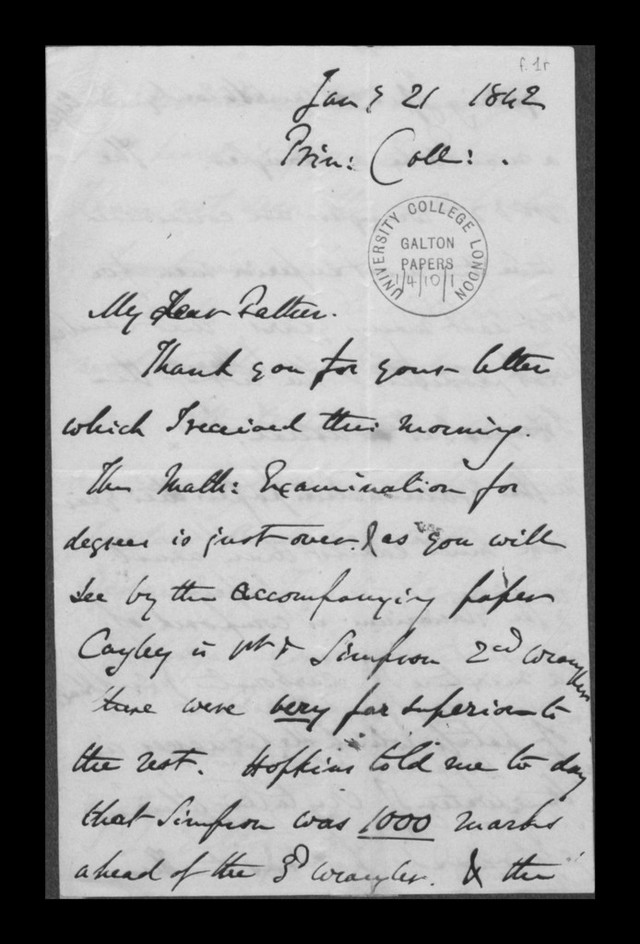 f. 1r
Jany 21 1842
Trin: Coll: .
UNIVERSITY COLLEGE LONDON
GALTON
PAPERS
1/4/10/1
My Dear Father.
Thank you for your letter
which I received this morning.
The Math: Examination for
degrees is just over. & as you will
see by the accompanying paper
Cayley is 1st & Simpson 2nd Wranglers
these were very far superior to
the rest. Hopkins told me to day
that Simpson was 1000 marks
ahead of the 3d Wrangler. & the